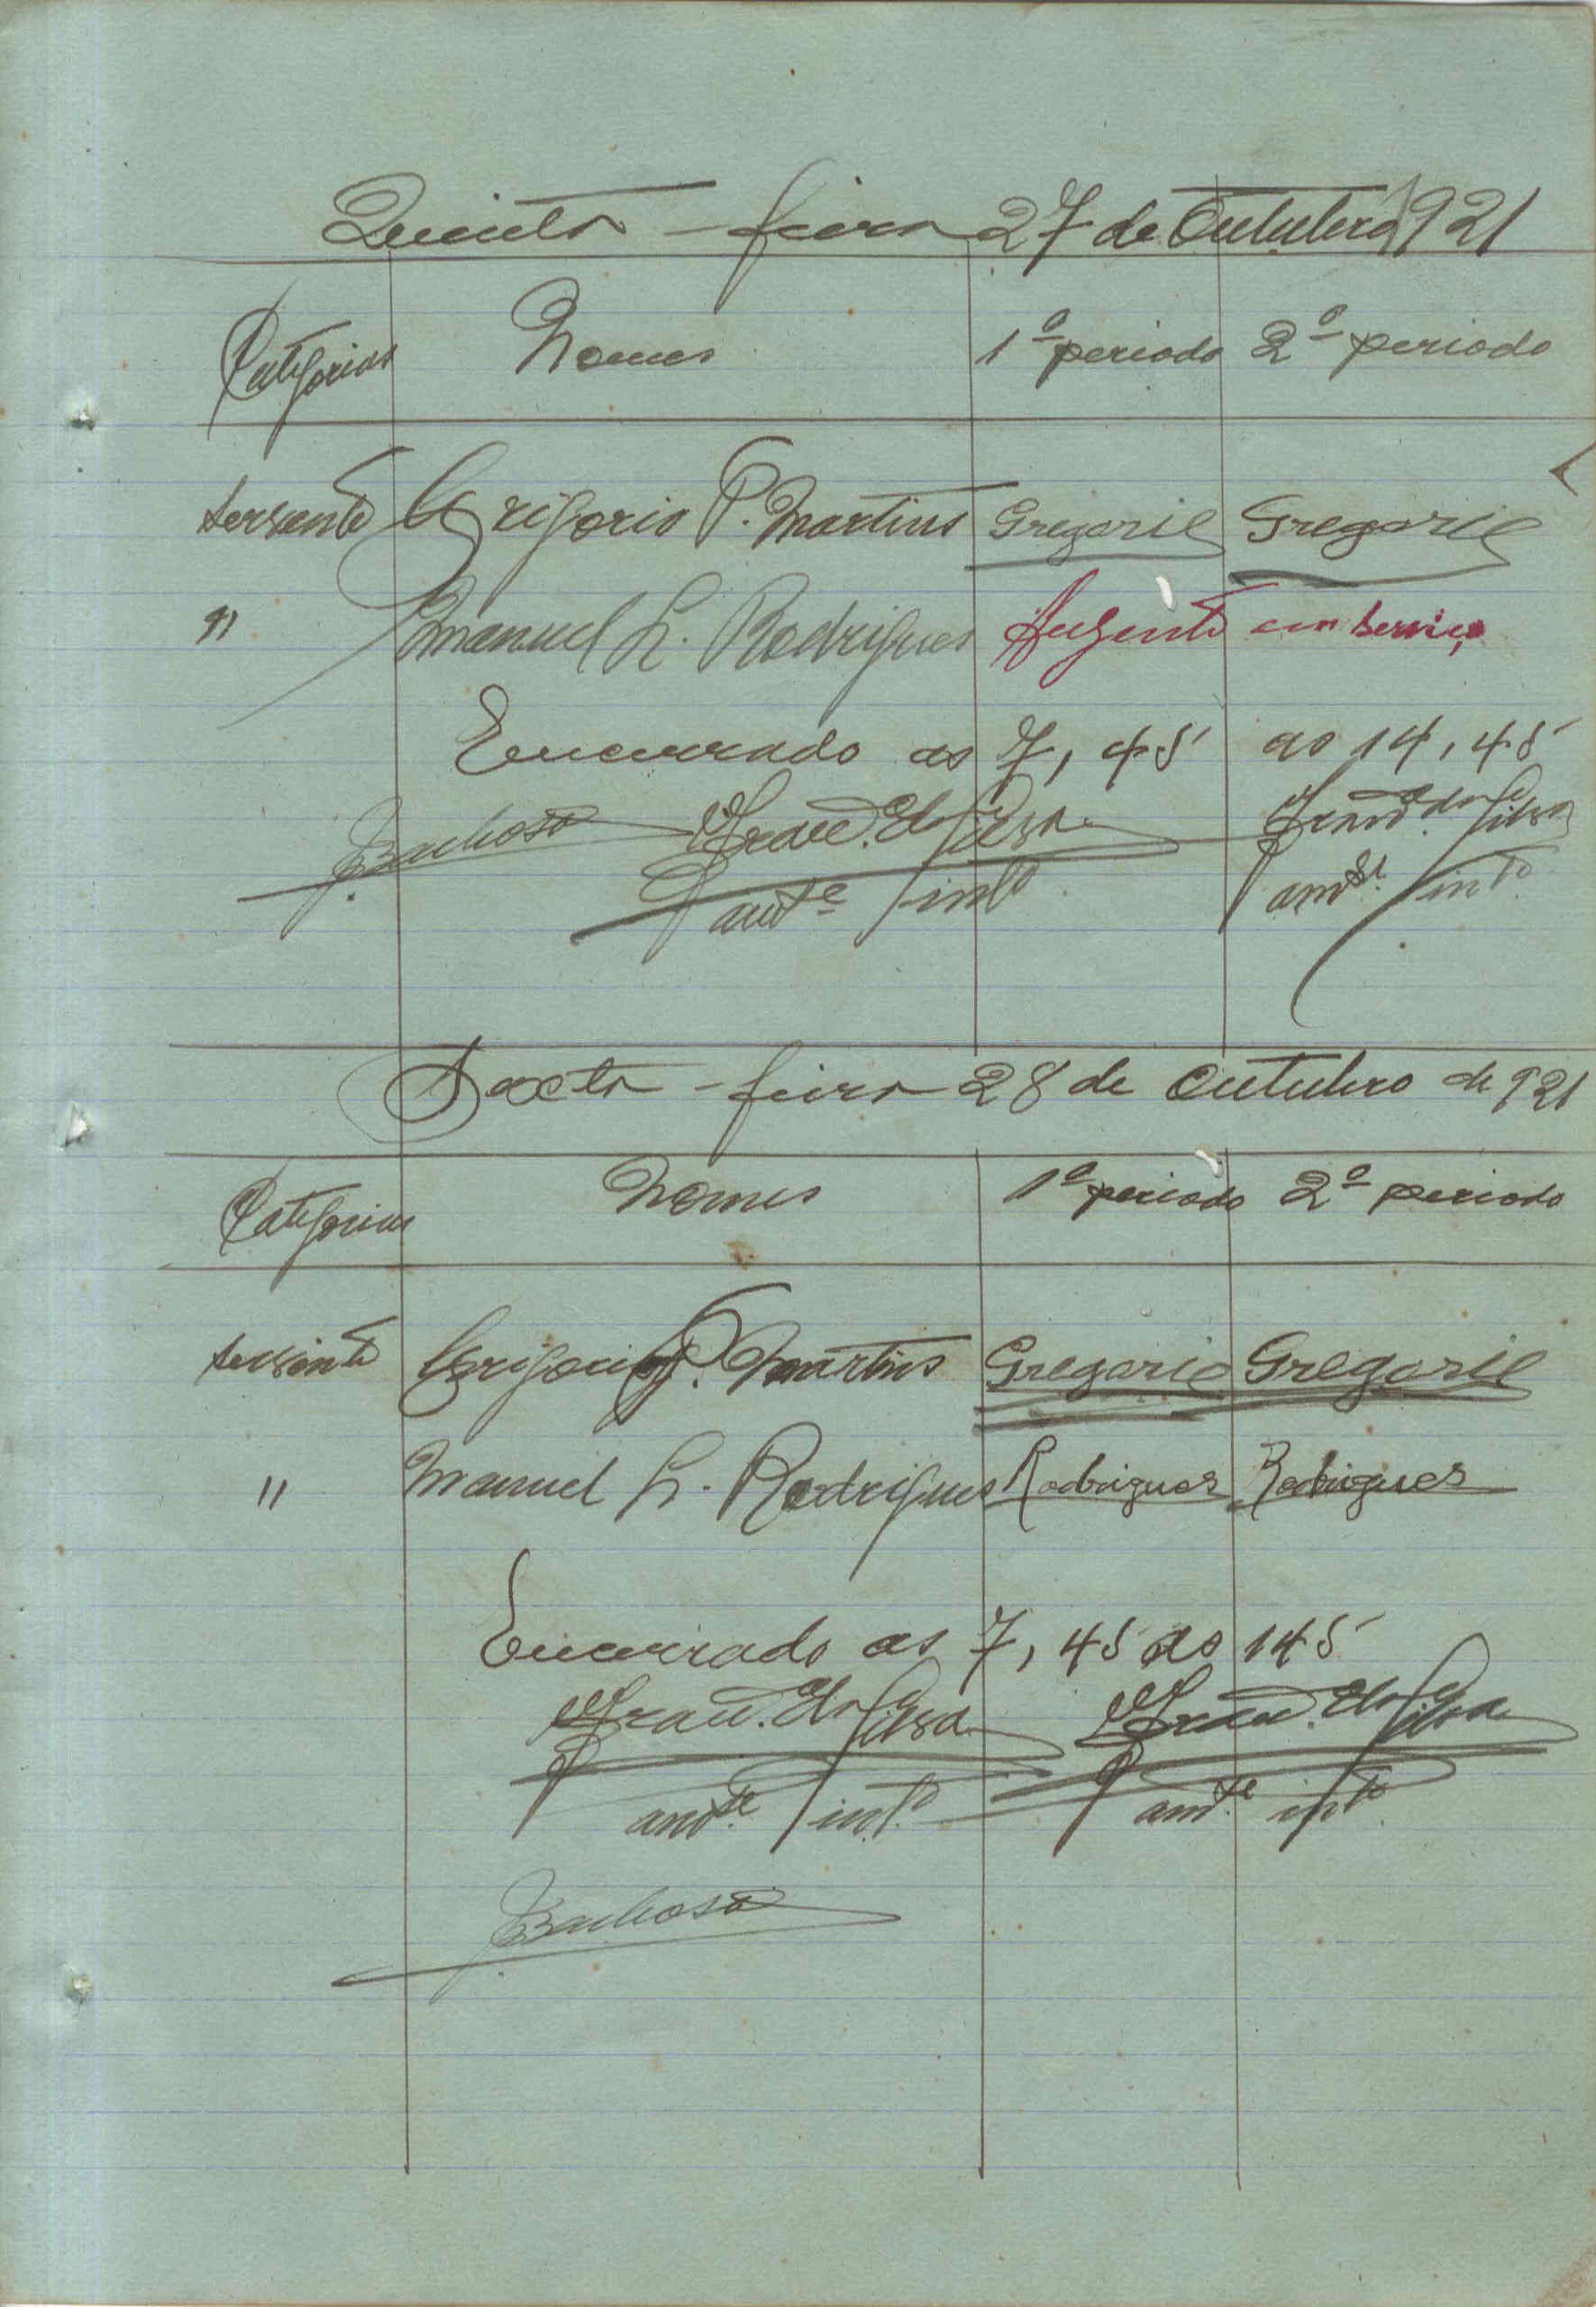 Quinta - feira 27 de Outubro 1921
Categorias Nomes 1º periodo 2º periodo
Servente Grigorio P. Martins Gregorio Gregorio
" Manuel L. Rodrigues Ausente em serviço
Encerrado as 7,45 as 14,45
Barbosa Franc. da Silva Franc. da Silva
amte intº amte intº
Sexta - feira 28 de Outubro de 921
Categorias Nomes 1º periodo 2º periodo
Servente Grigorio P. Martins Gregorio Gregorio
" Manuel L. Rodrigues Rodrigues Rodrigues
Encerrado as 7,45 as 145
Franc. da Silva Franc. da Silva
amte intº amte intº
Barbosa